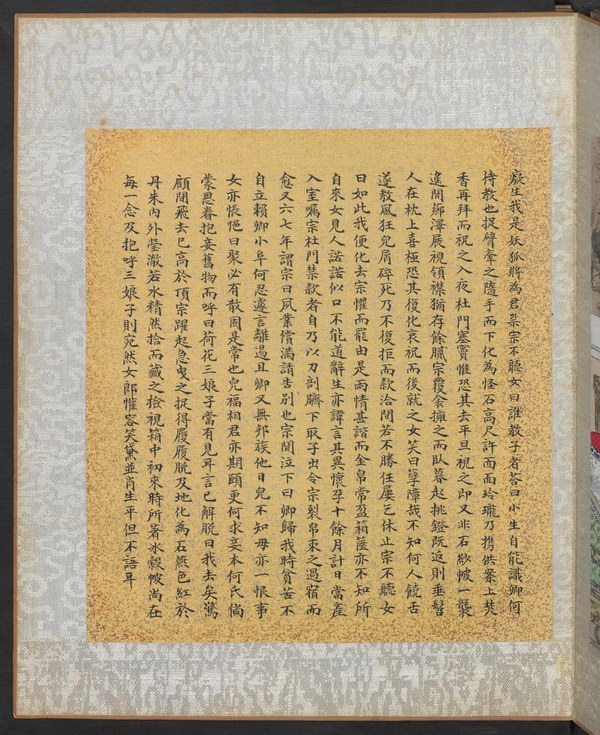 癡生我是妖狐將為君祟宗不聽女曰誰教子者答曰小生自能識卿何
待教也捉臂牽之隨手而下化為怪石高尺許面面玲瓏乃攜供案上焚
香再拜而祝之入夜杜門塞竇惟恐其去平旦視之即又非石紗帔一襲
遙聞薌澤展視領襟猶存餘膩宗覆衾擁之而臥暮起挑鐙既返則垂髫
人在枕上喜極恐其復化哀祝而後就之女笑曰孽障哉不知何人饒舌
遂教風狂兒屑碎死乃不復拒而款洽間若不勝任屢乞休止宗不聽女
曰如此我便化去宗懼而罷由是兩情甚諧而金帛常盈箱篋亦不知所
自來女見人諾諾似口不能道辭生亦諱言其異懷孕十餘月計日當產
入室囑宗杜門禁款者自乃以刀剖臍下取子出令宗裂帛束之過宿而
愈又六七年謂宗曰夙業償滿請告別也宗聞泣下曰卿歸我時貧苦不
自立賴卿小阜何忍遽言離逷且卿又無邦族他日兒不知母亦一恨事
女亦悵悒曰聚必有散固是常也兒福相君亦期頤更何求妾本何氏倘
蒙思眷抱妾舊物而呼曰荷花三娘子當有見耳言已解脫曰我去矣驚
顧間飛去已高於頂宗躍起急曳之捉得履履脫及地化為石燕色紅於
丹朱內外瑩澈若水精然拾而藏之撿視箱中初來時所著冰縠帔尚在
每一念及抱呼三娘子則宛然女郎懽容笑黛並肖生平但不語耳